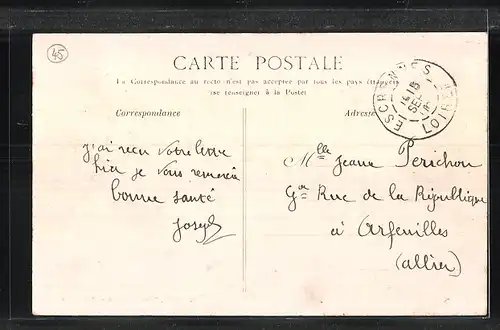 45
CARTE POSTALE
La Correspondance au recto n'est pas acceptée par tous les pays étrangers
(se renseigner à la Poste)
Correspondance
Adresse
ESCRENNES
LOIRET
15
SEPT
J'ai reçu votre lettre
hier je vous remercie
bonne santé
Joseph
Mlle Jeane Perichon
Gde Rue de la République
à Arfeuilles
(allier)